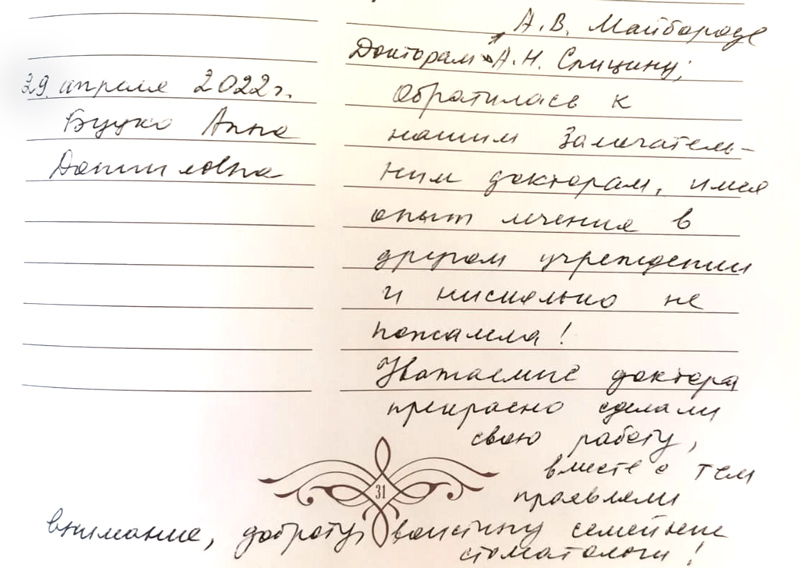 29 апреля 2022г.
Буцко Анна
Даниловна
А.В. Майбороде
Докторам А.Н. Спицину;
Обратилась к
нашим замечатель-
ним докторам, имея
опыт лечения в
другом учреждении
и нисколько не
пожалела!
Уважаемые доктора
прекрасно сделали
свою работу,
вместе с тем
проявляли
внимание, доброту, воистину семейные
стоматологи!
31